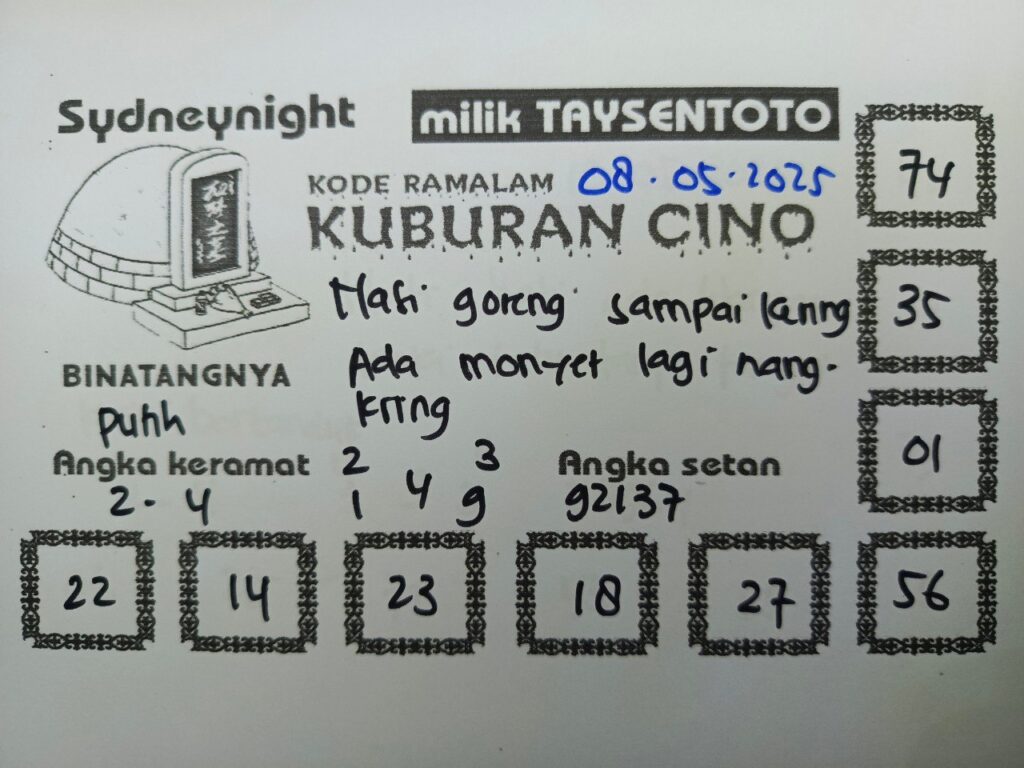 Sydneynight
milik TAYSENTOTO
KODE RAMALAM 08.05.2025
KUBURAN CINO
Nasi goreng sampai
Ada monyet lagi nang-
kring
BINATANGNYA
Angka keramat
2 - 4
2 3
1 4 9
Angka setan
92137
74
35
01
22 14 23 18 27 56